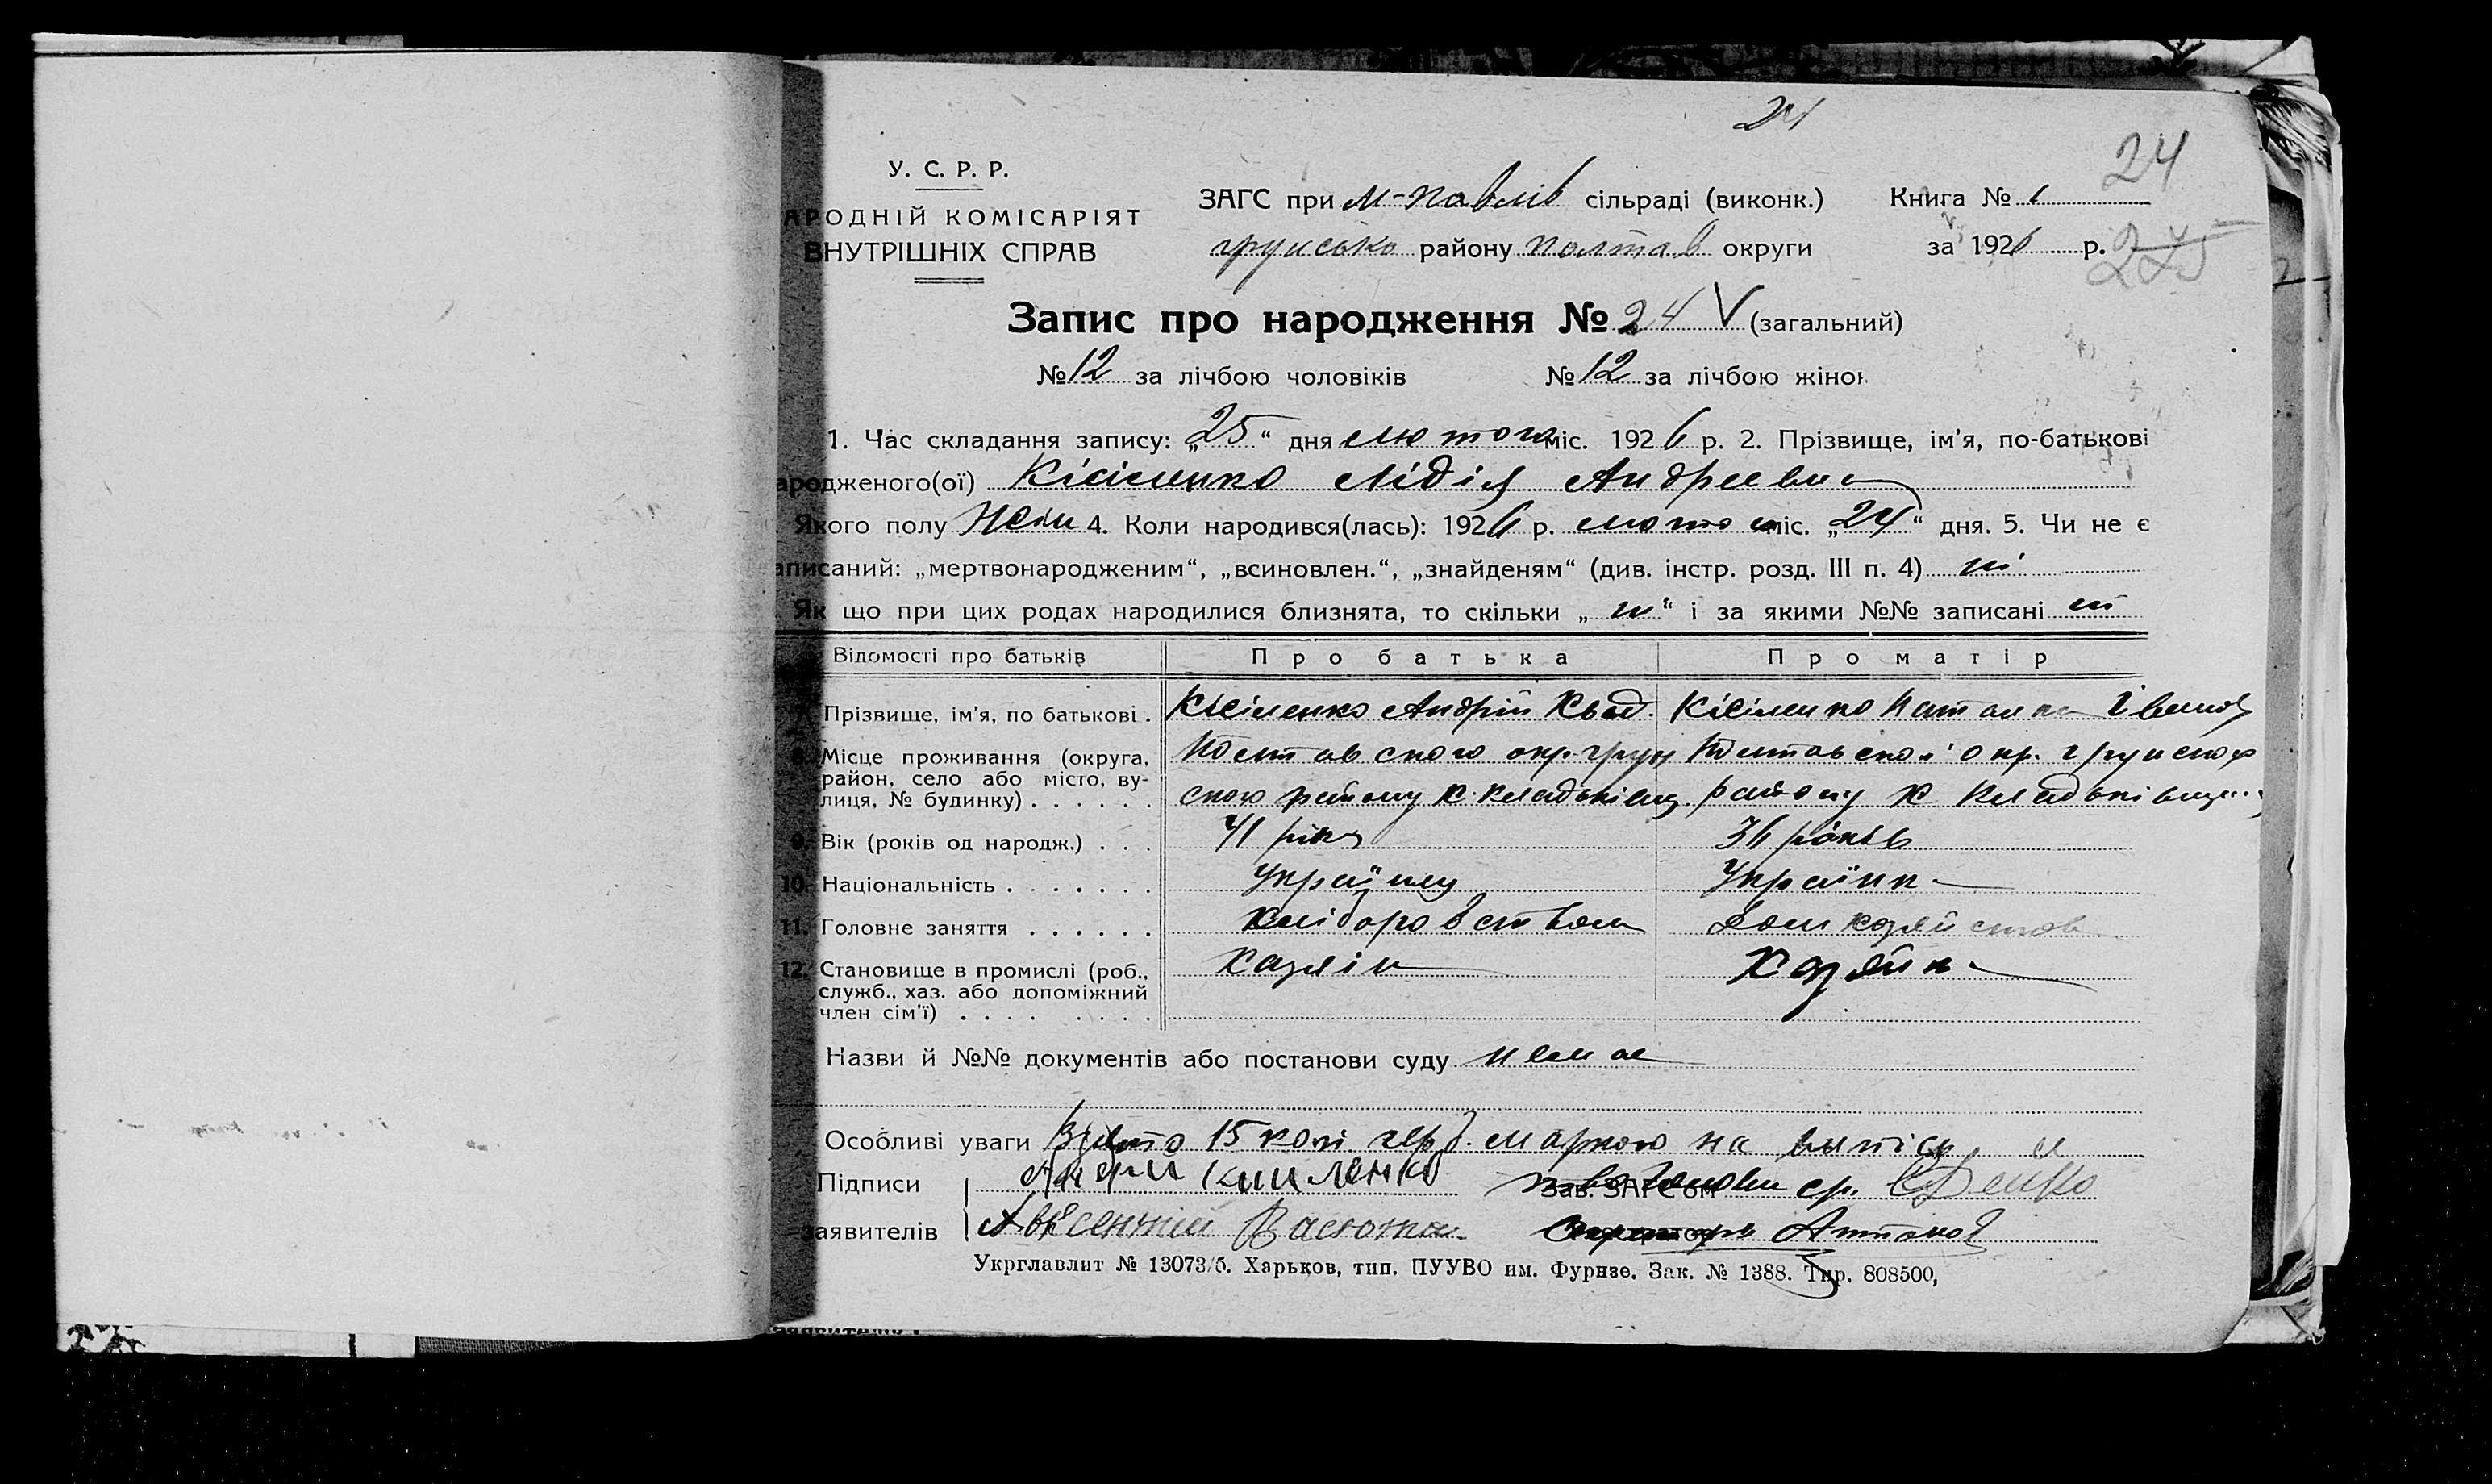 24
24
У. С. Р. Р.
АРОДНІЙ КОМІСАРІЯТ
ВНУТРІШНІХ СПРАВ
ЗАГС при М-Павлів сільраді (виконк.)
Книга № 1
грунсько району Полтав округи
за 1926 р.
275
Запис про народження № 24 V (загальний)
№ 12 за лічбою чоловіків № 12 за лічбою жінок
1. Час складання запису: „25“ дня лютого міс. 1926 р. 2. Прізвище, ім’я, по-батькові
ародженого(ої) Кісіленко Лідія Андреевна
Якого полу Жін 4. Коли народився(лась): 1926 р. лютого міс. „24“ дня. 5. Чи не є
аписаний: „мертвонародженим“, „всиновлен.“, „знайденям“ (див. інстр. розд. III п. 4) ні
Як що при цих родах народилися близнята, то скільки „ні“ і за якими №№ записані ні
Відомості про батьків Про батька Про матір
Прізвище, ім’я, по батькові . Кісіленко Андрій Кісіленко Наталка Іванов
8. Місце проживання (округа, район, село або місто, вулиця, № будинку) . . . . . .
Полтавского окр. грун
ского району х.
Полтавскоі окр. грунскоо
району х
9. Вік (років од народж.) . . . 41 рік 36 років
10. Національність . . . . . . . Українец Українка
11. Головне заняття . . . . . . Хліборовством Дом хозяйством
12. Становище в промислі (роб., служб., хаз. або допоміжний член сім’ї) . . . . . . . . Хазяін Хозяйка
Назви й №№ документів або постанови суду немае
Особливі уваги Взято 15 коп герб. маркою на випіс
Підписи Андрій Кишленко Зав. ЗАГС’ом
заявителів Василь Секретарь
Укрглавлит № 13073/б. Харьков, тип. ПУУВО им. Фурнзе. Зак. № 1388. Тир. 808500,